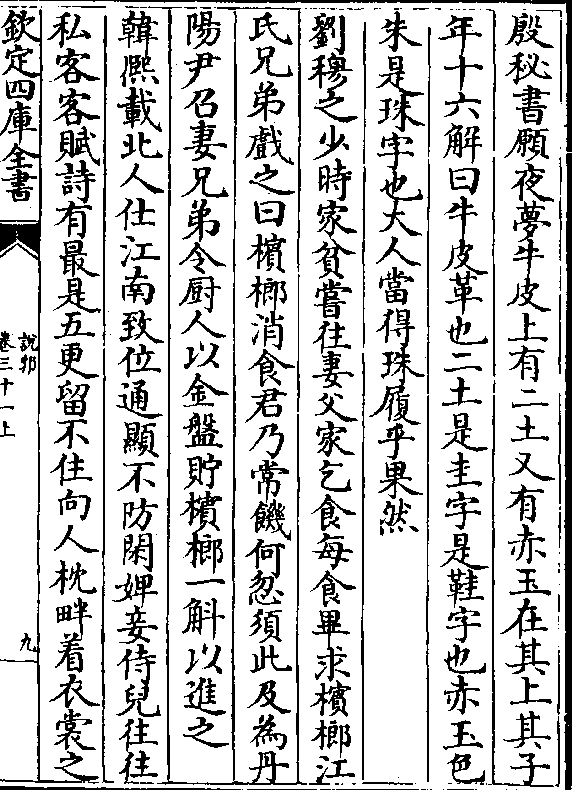 殷秘書願夜夢牛皮上有二土又有赤玉在其上其子
年十六解曰牛皮革也二土是圭字是鞋字也赤玉色
朱是珠字也大人當得珠履乎果然
劉穆之少時家貧嘗往妻父家乞食每食畢求檳榔江
氏兄弟戲之曰檳榔消食君乃常饑何忽須此及為丹
陽尹召妻兄弟令厨人以金盤貯檳榔一斛以進之
韓熙載北人仕江南致位通顯不防閑婢妾侍兒往往
私客客賦詩有最是五更留不住向人枕畔着衣裳之
欽定四庫全書
說郛
卷三十一上
九